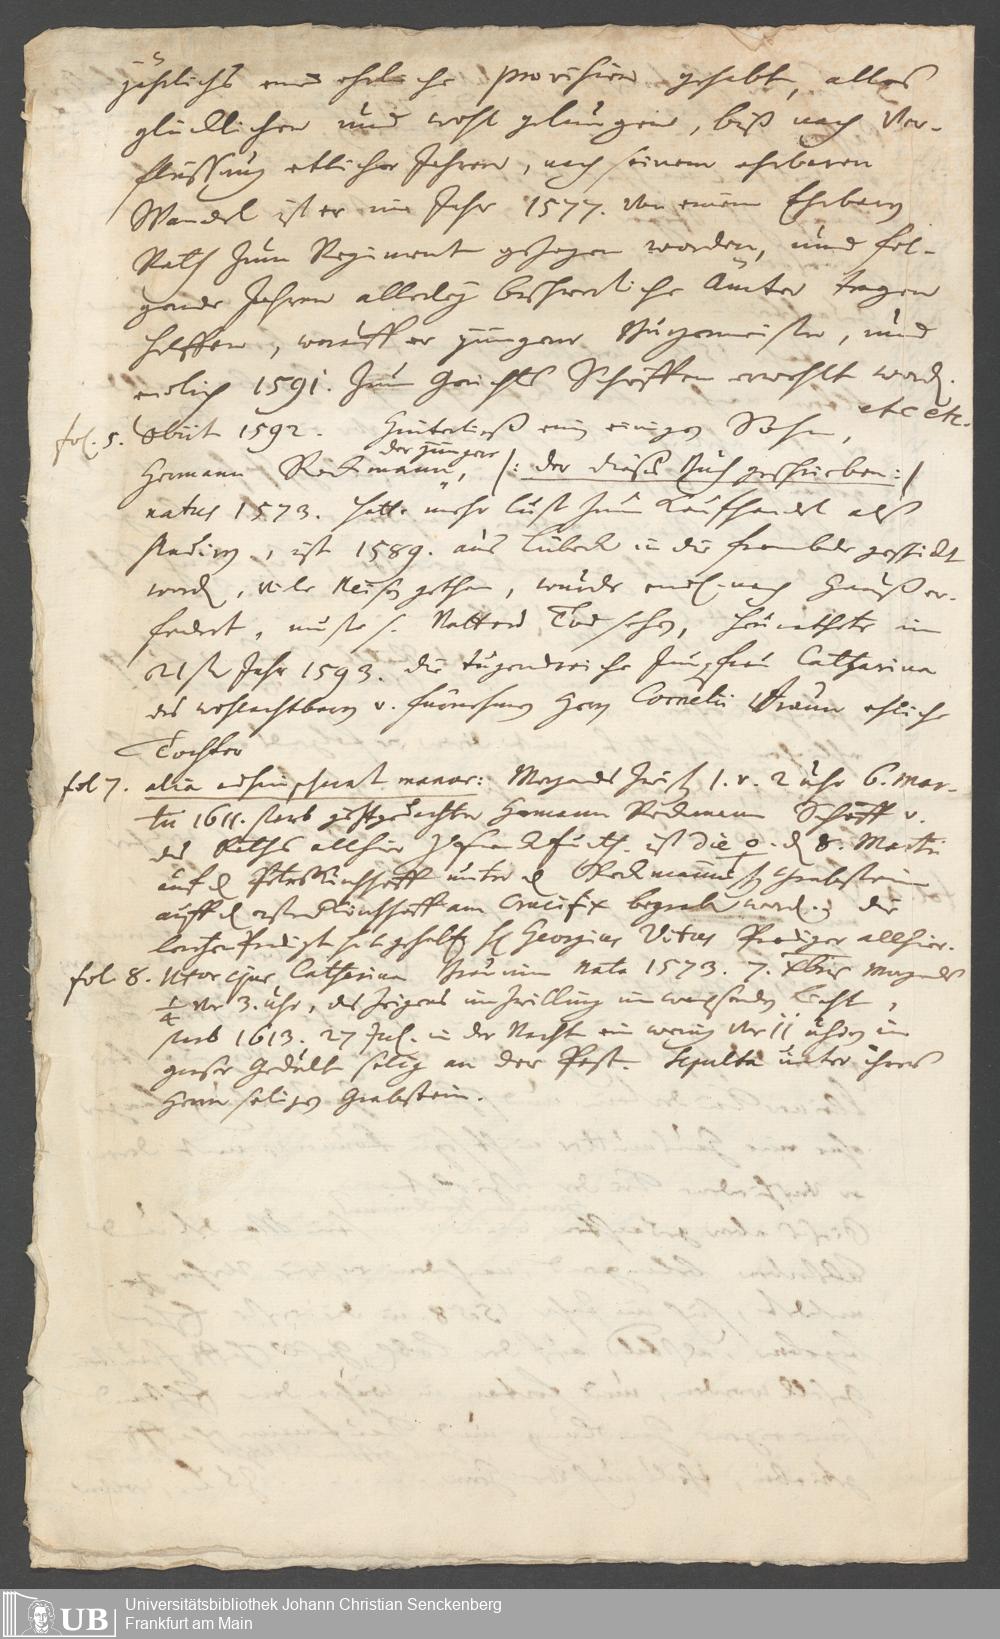 jährlichs eine ehrliche provision gehabt, alles
glücklichen und wohl gelungen, biß nach Ver-
fliessung etlicher Jahren, nach seinem ehrbaren
Wandel ist er im Jahr 1577. von einem Ehrbarn
Rath zum Regiment gezogen worden, und fol-
gende Jahren allerley beschwerliche Ämter tragen
helffen, worauff er jünger Bürgermeister, und
endlich 1591. zum Gerichts Schöffen erwehlt word.
etc etc.
fol. 5. Obiit 1592. Hinterließ ein einigen Sohn,
der jüngere
Hermann Reckmann, |: der dieses Buch geschrieben :|
natus 1573. hatte mehr lust zum Kaufhandel alß
studiren, ist 1589. aus Lübeck in die frembde geschickt
word, viele Reisen gethan, wurde endl. nach Hauß er-
fodert, muste s. Vatters Tod sehen, heurathete im
21st Jahr 1593. die tugendreiche Jungfrau Catharina
des wohlachtbarn v. fürnehmen Herrn Cornelii Braun ehliche
Tochter
fol 7. alia manus: Morgends zwisch 1. v. 2 uhr 6. Mar-
tii 1611. starb Hermann Reckmann Schöff v.
des Raths allhier zu Franckfurth. ist die 8. Martii
auf d Peters Kirchhoff unter d Reckmännisch Grabstein
auff d Kirchhoff am Crucifix begrab word. die
leichen Predigt hat gehalten H Georgius Vitus Prediger allhier.
fol 8. Uxor ejus Catharina Bräunin nata 1573. 7. Xbris morgends
1/4 vor 3. uhr, des Zeigens im Zwilling im wachsenden Liecht,
starb 1613. 27 Jul. in der Nacht ein wenig vor 11 uhren in
grosser Gedult selig an der Pest. Sepulta unter ihres
Herrn seligen Grabstein.
UB
Universitätsbibliothek Johann Christian Senckenberg
Frankfurt am Main